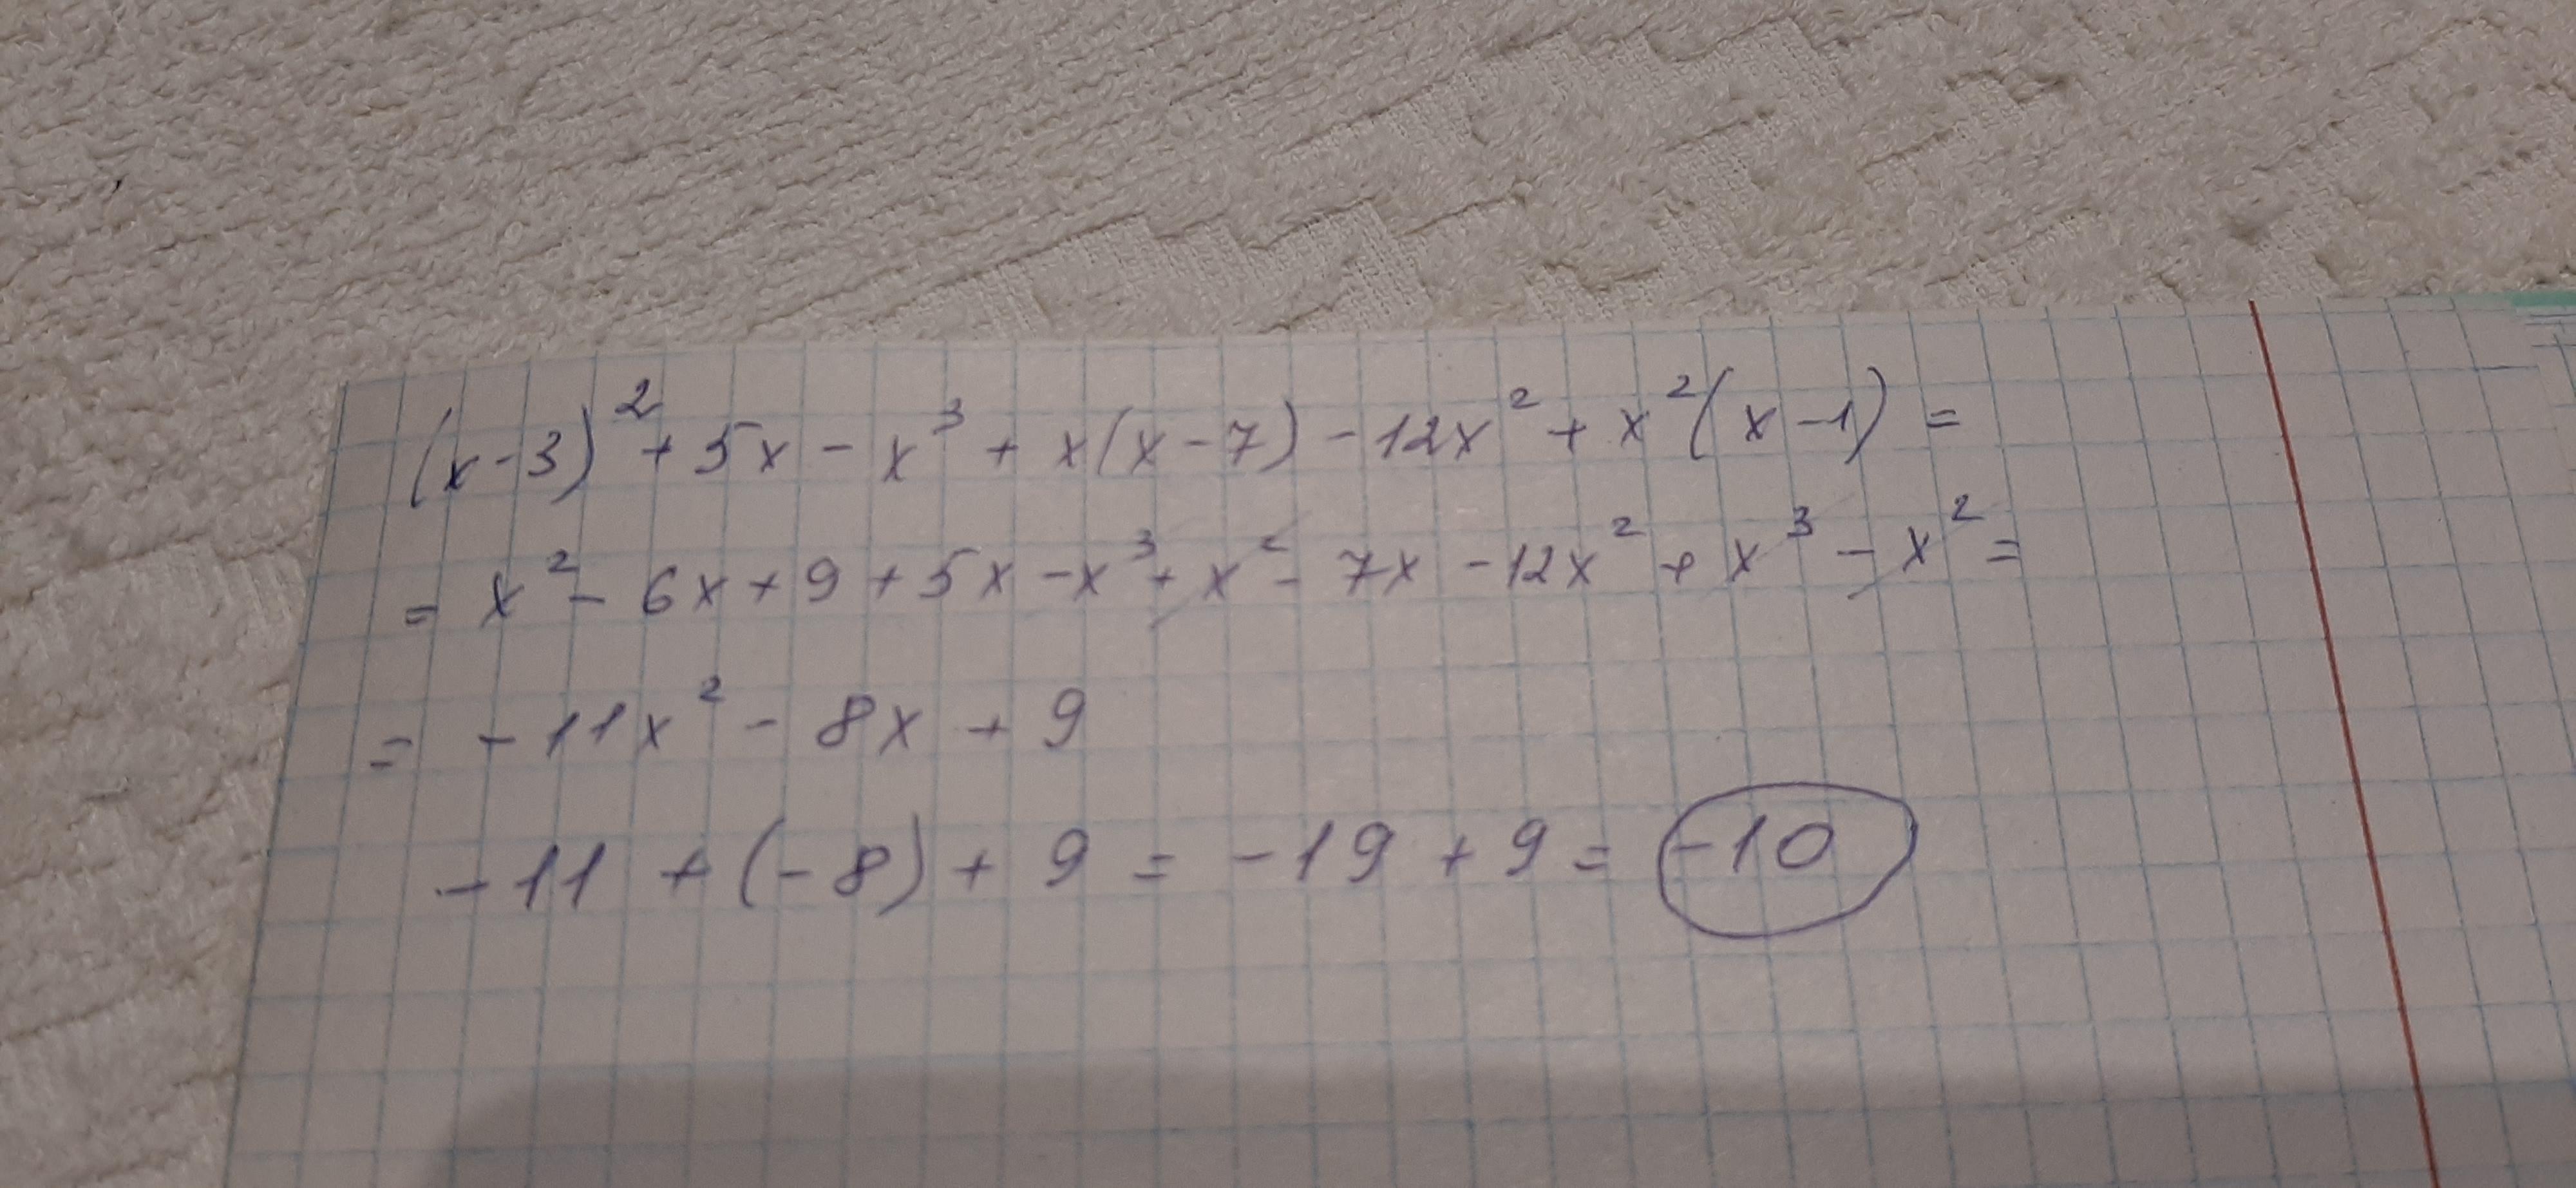 (x-3)² + 5x - x³ + x(x-7) - 12x² + x²(x-1) =
= x² - 6x + 9 + 5x - x³ + x² - 7x - 12x² + x³ - x² =
= -11x² - 8x + 9
-11 + (-8) + 9 = -19 + 9 = -10